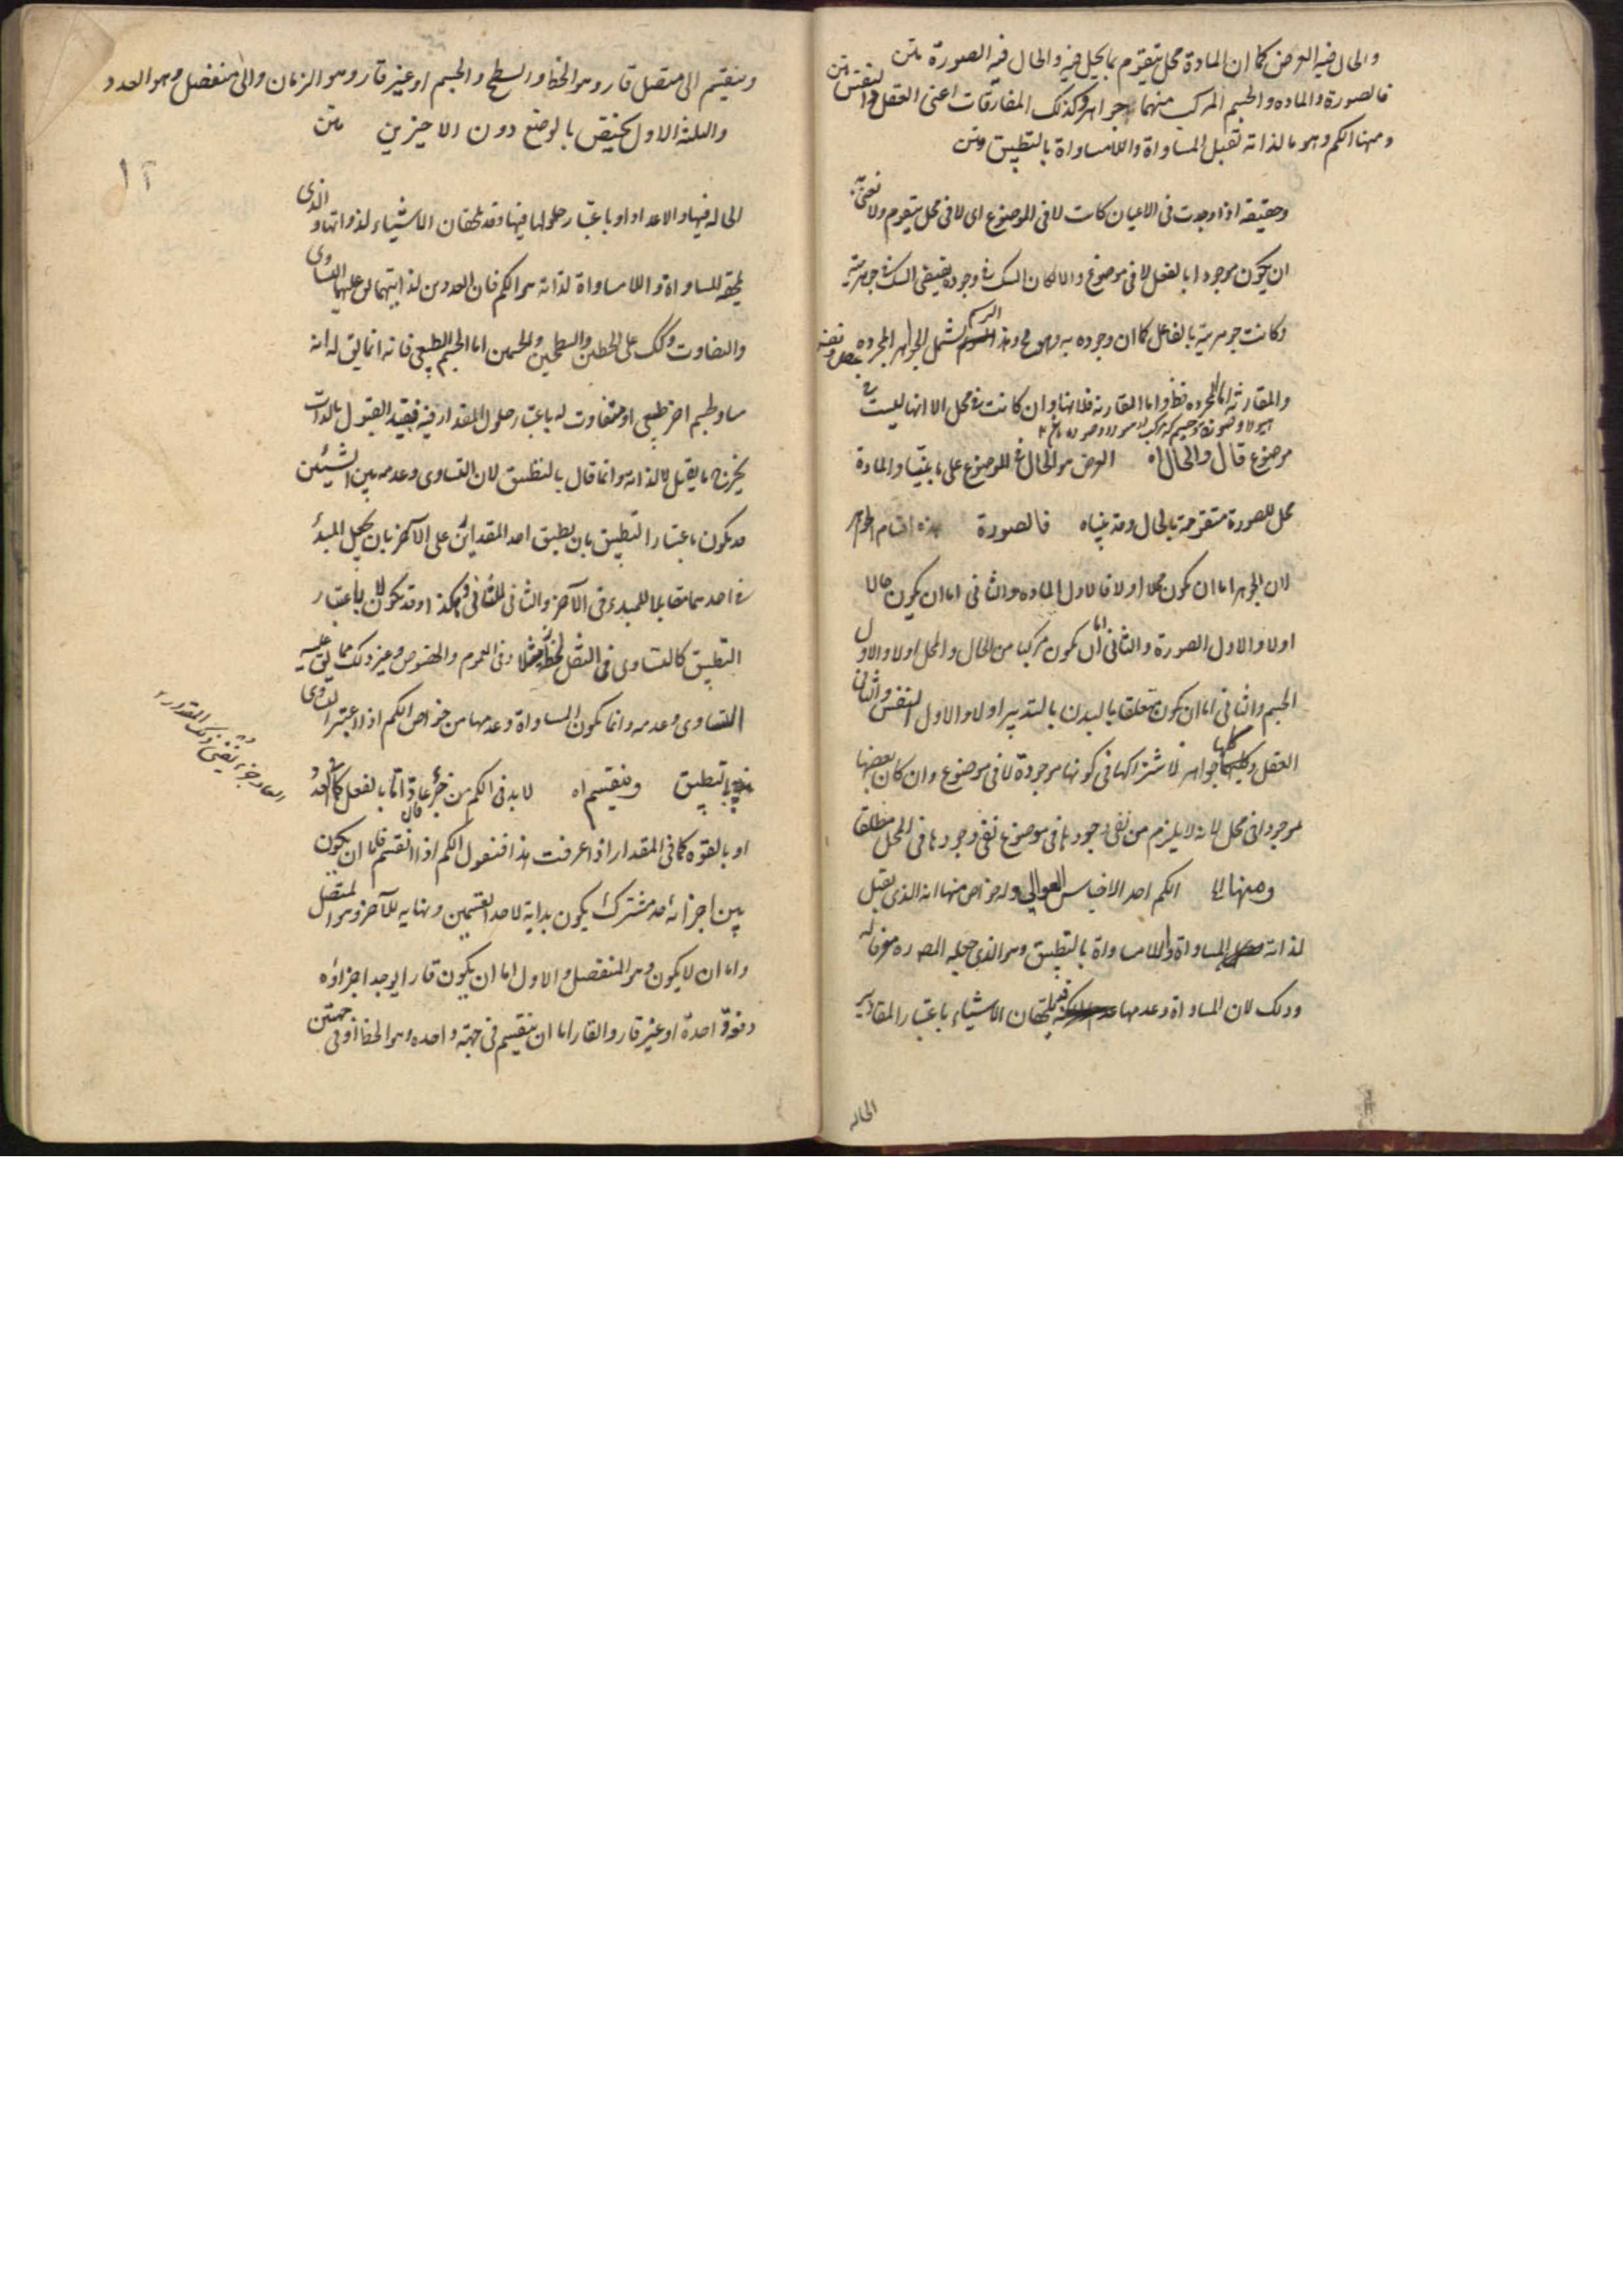 والحال فيه العرض كما ان المادة محل يتقوم بما يحل فيه والحال فيه الصورة متن
فالصورة والماده والجسم المركب منهما جواهر وكذلك المفارقات اعنى العقل والنفس متن
ومنها الكم وهو ما لذاته تقبل المساواة واللامساواة بالتطبيق متن
وحقيقه اذا وجدت فى الاعيان كانت لا فى الموضوع اى لا فى محل يتقوم ولا نعنى به
ان يكون موجودا بالفعل لا فى موضوع والا لكان الشك فى وجوده يقتضى الشك فى جوهريته
وكانت جوهريته بالفاعل كما ان وجوده به وهو مح وهذا الرسم يشمل الجواهر المجرده
والمقارنة اما المجرده فظ واما المقارنه فلانها وان كانت فى محل الا انها ليست فى
موضوع قال والحال اه العرض هو الحال فى الموضوع على ما بينا والمادة
محل للصورة متقومة بالحال وقد بيناه فالصورة هذه اقسام الجواهر
لان الجوهر اما ان يكون محلا اولا فالاول الماده والثانى اما ان يكون حالا
اولا والاول الصورة والثانى اما ان يكون مركبا من الحال والمحل اولا والاول
الجسم والثانى اما ان يكون متعلقا بالبدن بالتدبير اولا والاول النفس والثانى
العقل وكلها جواهر لاشتراكها فى كونها موجودة لا فى موضوع وان كان بعضها
موجودا فى محل لانه لا يلزم من نفى وجودها فى موضوع نفى وجودها فى المحل مطلقا
ومنها الى الكم احد الاجناس العوالي وله خواص منها انه الذى يقبل
لذاته المساواة واللامساواة بالتطبيق وهو الذى جعله المص ره معرفا له
وذلك لان المساواة وعدمها يلحقان الاشياء باعتبار المقادير
الحاله
وينقسم الى متصل قار وهو الخط والسطح والجسم او غير قار وهو الزمان والى منفصل وهو العدد
والثلثة الاول يختص بالوضع دون الاخيرين متن
١٢
الحاله فيها والاعداد او باعتبار حلولها فيها وقد يلحقان الاشياء لذواتها والذى
يلحقه المساواة واللامساواة لذاته هو الكم فان العددين لذاتيهما يق عليهما التساوى
والتفاوت وكك على الخطين والسطحين والجسمين اما الجسم الطبيعى فانه انما يق له انه
مساو لجسم اخر طبيعى او متفاوت له باعتبار حلول المقدار فيه فبقيد القبول بالذات
يخرج ما يقبل لا لذاته وانما قال بالتطبيق لان التساوى وعدمه بين الشيئين
قد يكون باعتبار التطبيق بان يطبق احد المقدارين على الآخر بان يجعل المبدأ
فى احدهما مقابلا للمبدء فى الآخر والثانى للثانى وهكذا وقد يكون لا باعتبار
التطبيق كالتساوى فى الثقل والخفة مثلا وفى العموم والخصوص وغير ذلك مما يق عليه
التساوى وعدمه وانما يكون المساواة وعدمها من خواص الكم اذا اعتبر التساوى
بالتطبيق وينقسم اه لا بد فى الكم من جزء عاد اما بالفعل كما فى العدد
او بالقوه كما فى المقدار اذا عرفت هذا فنقول الكم اذا انقسم فاما ان يكون
بين اجزائه حد مشترك يكون بداية لاحد القسمين ونهايه للآخر وهو المتصل
واما ان لا يكون وهو المنفصل والاول اما ان يكون قارا يوجد اجزاؤه
دفعة واحدة او غير قار والقار اما ان ينقسم فى جهة واحده وهو الخط او فى جهتين